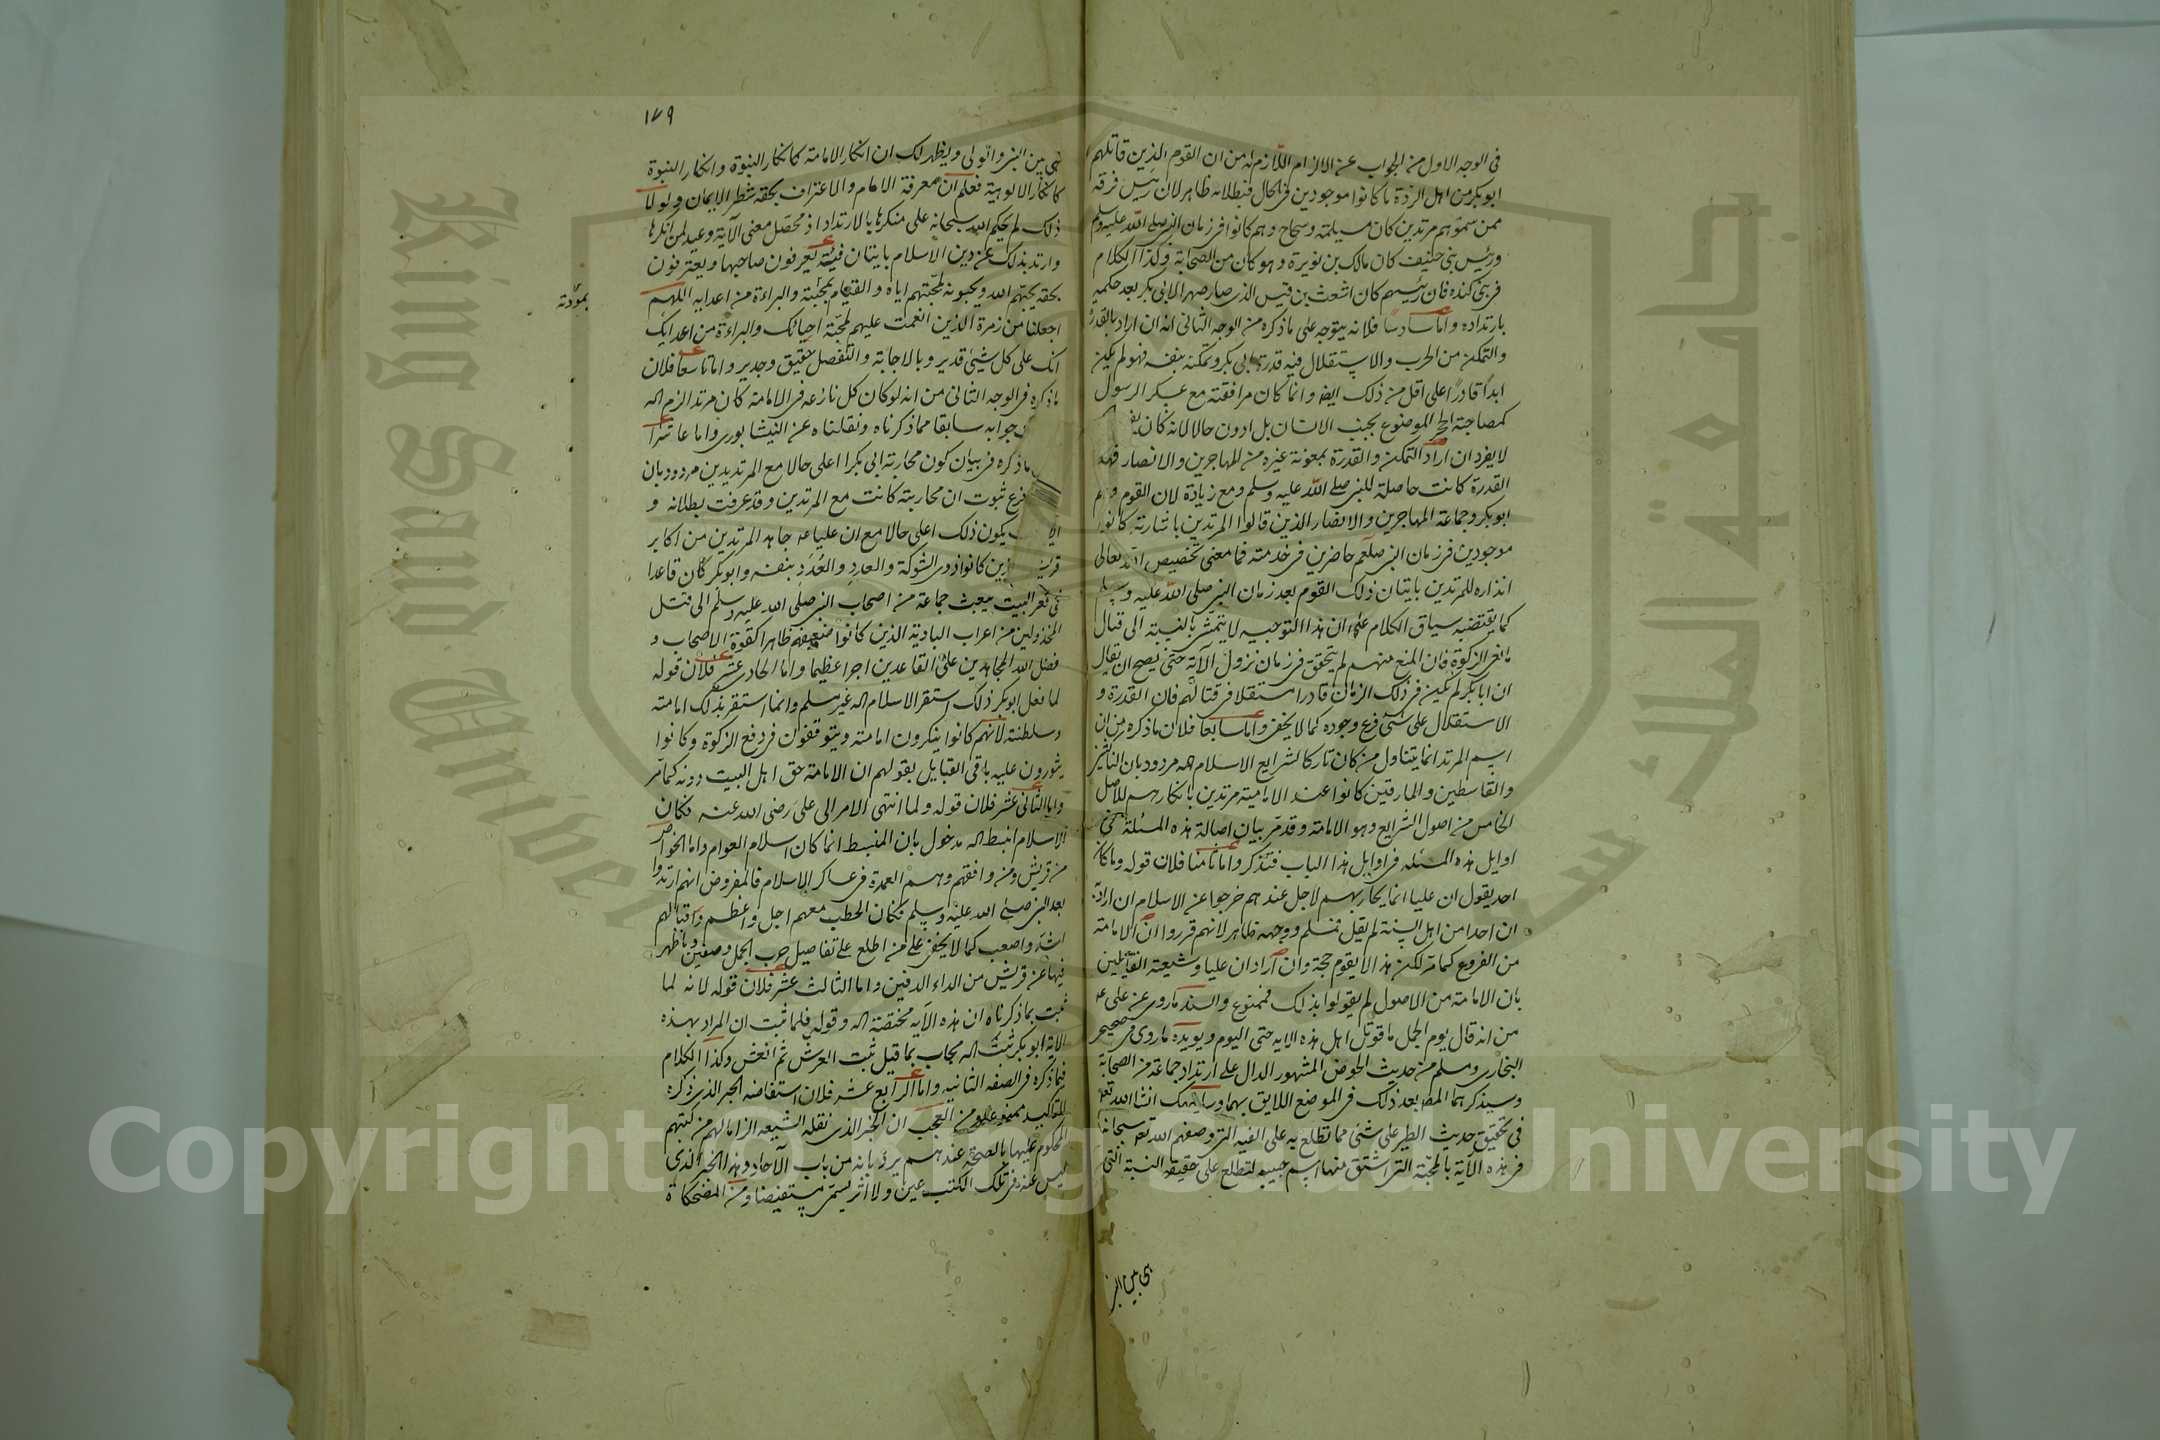 فى الوجه الاول من الجواب عن الالزام اللازم له من ان القوم الذين قاتلهم
ابو بكر من اهل الردة ما كانوا موجودين فى الحال فبطلانه ظاهر لان رئيس فرقة
ممن سموهم مرتدين كان مسيلمة وسجاح وهم كانوا فى زمان النبى صلى الله عليه وسلم
ورئيس بنى حنيف كان مالك بن نويرة وهو كان من الصحابة وكذا الكلام
فى بنى كندة فان رئيسهم كان اشعث بن قيس الذى صار صهرا لابى بكر بعد حكمه
بارتداده واما سادسا فلانه يتوجه على ما ذكره من الوجه الثانى انه ان اراد بالقدرة
والتمكن من الحرب والاستقلال فيه قدرة ابى بكر وتمكنه بنفسه فهو لم يكن
ابدا قادرا على اقل من ذلك ايضا وانما كان مرافقته مع عسكر الرسول
كمصاحبة الحجر الموضوع بجنب الانسان بل ادون حالا لانه كان يفر
لا يفرد ان اراد التمكن والقدرة بمعونة غيره من المهاجرين والانصار فهذه
القدرة كانت حاصلة للنبى صلى الله عليه وسلم ومع زيادة لان القوم وهم
ابو بكر وجماعة المهاجرين والانصار الذين قاتلوا المرتدين باشارته كانوا
موجودين فى زمان النبى صلعم حاضرين فى خدمته فما معنى تخصيص الله تعالى
انذاره للمرتدين باتيان ذلك القوم بعد زمان النبى صلى الله عليه وسلم
كما يقتضيه سياق الكلام على ان هذا التوجيه لا يتمشى بالنسبة الى قتال
مانعى الزكوة فان المنع منهم لم يتحقق فى زمان نزول الآية حتى يصح ان يقال
ان ابا بكر لم يكن فى ذلك الزمان قادرا مستقلا فى قتالهم فان القدرة و
الاستقلال على شئ فرع وجوده كما لا يخفى واما سابعا فلان ما ذكره من ان
اسم المرتد انما يتناول من كان تاركا لشرايع الاسلام اه مردود بان الناكثين
والقاسطين والمارقين كانوا عند الامامية مرتدين بانكارهم للاصل
الخامس من اصول الشرايع وهو الامامة وقد مر بيان اصالة هذه المسئلة فى
اوايل هذه المسئله فى اوايل هذا الباب فتذكر واما ثامنا فلان قوله وما كان
احد يقول ان عليا انما يحاربهم لاجل عندهم خرجوا عن الاسلام ان اراد به
ان احدا من اهل السنة لم يقل فمسلم ووجهه ظاهر لانهم قرروا ان الامامة
من الفروع كما مر لكن هذا لا يقوم حجة وان اراد ان عليا وشيعته القائلين
بان الامامة من الاصول لم يقولوا بذلك فممنوع والسند ما روى عن على عه
من انه قال يوم الجمل ما قوتل اهل هذه الاية حتى اليوم ويويده ما روى فى صحيح
البخارى ومسلم من حديث الحوض المشهور الدال على ارتداد جماعة من الصحابة
وسيذكرهما المصـ بعد ذلك فى الموضع اللايق بهما وسانبهك انشاء الله تعالى
فى تحقيق حديث الطير على شئ مما تطلع به على الفية التى وصفهم الله تعالى سبحانه
فى هذه الآية بالمحبة التى اشتق منها اسم حبيبه لتطلع على حقيقة النسبة التى
هى بين النبى
١٧٩
هى بين النبى والولى ويظهر لك ان انكار الامامة كانكار النبوة وانكار النبوة
كانكار الالوهية فعلم ان معرفة الامام والاعتراف بحقه شطر الايمان ولولا
ذلك لم يحكم الله سبحانه على منكرها بالارتداد اذ محصل معنى الآية وعيد لمن انكرها
وارتد بذلك عن دين الاسلام باتيان فئة يعرفون صاحبها ويعترفون
بحقه يحبهم الله ويحبونه لمحبتهم اياه والقيام بمحبته والبراءة من اعدايه اللهم
بمودته
اجعلنا من زمرة الذين انعمت عليهم لمحبة احبائك والبراءة من اعدائك
انك على كل شيئ قدير وبالاجابة والتفضل حقيق وجدير واما تاسعا فلان
ما ذكره فى الوجه الثانى من انه لو كان كل نازعه فى الامامة كان مرتدا لزم اه
جوابه سابقا مما ذكرناه ونقلناه عن النيشابورى واما عاشرا
ما ذكره فى بيان كون محاربة ابى بكر اعلى حالا مع المرتدين مردود بان
فرع ثبوت ان محاربته كانت مع المرتدين وقد عرفت بطلانه و
يكون ذلك اعلى حالا مع ان عليا عه جاهد المرتدين من اكابر
قريش الذين كانوا ذوى الشوكة والعدد والعُدد بنفسه وابو بكر كان قاعدا
فى قعر البيت يبعث جماعة من اصحاب النبى صلى الله عليه وسلم الى قتل
المخذولين من اعراب البادية الذين كانوا ضعيفهم ظاهرا لقوة الاصحاب و
فضل الله المجاهدين على القاعدين اجرا عظيما واما الحادى عشر فلان قوله
لما فعل ابو بكر ذلك استقر الاسلام اه غير مسلم وانما استقر بذلك امامته
وسلطنته لانهم كانوا ينكرون امامته ويتوقفون فى دفع الزكوة وكانوا
يشورون عليه باقى القبايل بقولهم ان الامامة حق اهل البيت دونه كما مر
واما الثانى عشر فلان قوله ولما انتهى الامر الى على رضى الله عنه فكان
الاسلام انبسط اه مدخول بان المنبسط انما كان اسلام العوام واما الخواص
من قريش ومن وافقهم وهم العمدة فى عساكر الاسلام فالمفروض انهم ارتدوا
بعد النبى صلى الله عليه وسلم فكان الخطب معهم اجل واعظم وقتالهم
اشد واصعب كما لا يخفى على من اطلع على تفاصيل حرب الجمل وصفين وما ظهر
فيها عن قريش من الداء الدفين واما الثالث عشر فلان قوله لانه لما
ثبت بما ذكرناه ان هذه الآيه مختصة اه وقوله فلما ثبت ان المراد بهذه
الاية ابو بكر ثبت اه مجاب بما قيل ثبت العرش ثم انقش وكذا الكلام
فيما ذكره فى الصفه الثانيه واما الرابع عشر فلان استفاضه الخبر الذى ذكره
للتاكيد ممنوع ومن العجب ان الخبر الذى نقله الشيعه الزاما لهم من كتبهم
المحكوم عليها بالصحة عندهم يرد بانه من باب الآحاد وهذا الخبر الذى
ليس عنه فى تلك الكتب عين ولا اثر يسمى مستفيضا ومن المضحكات
King Saud Univer
جامعة الملك س
Copyright © King Saud University